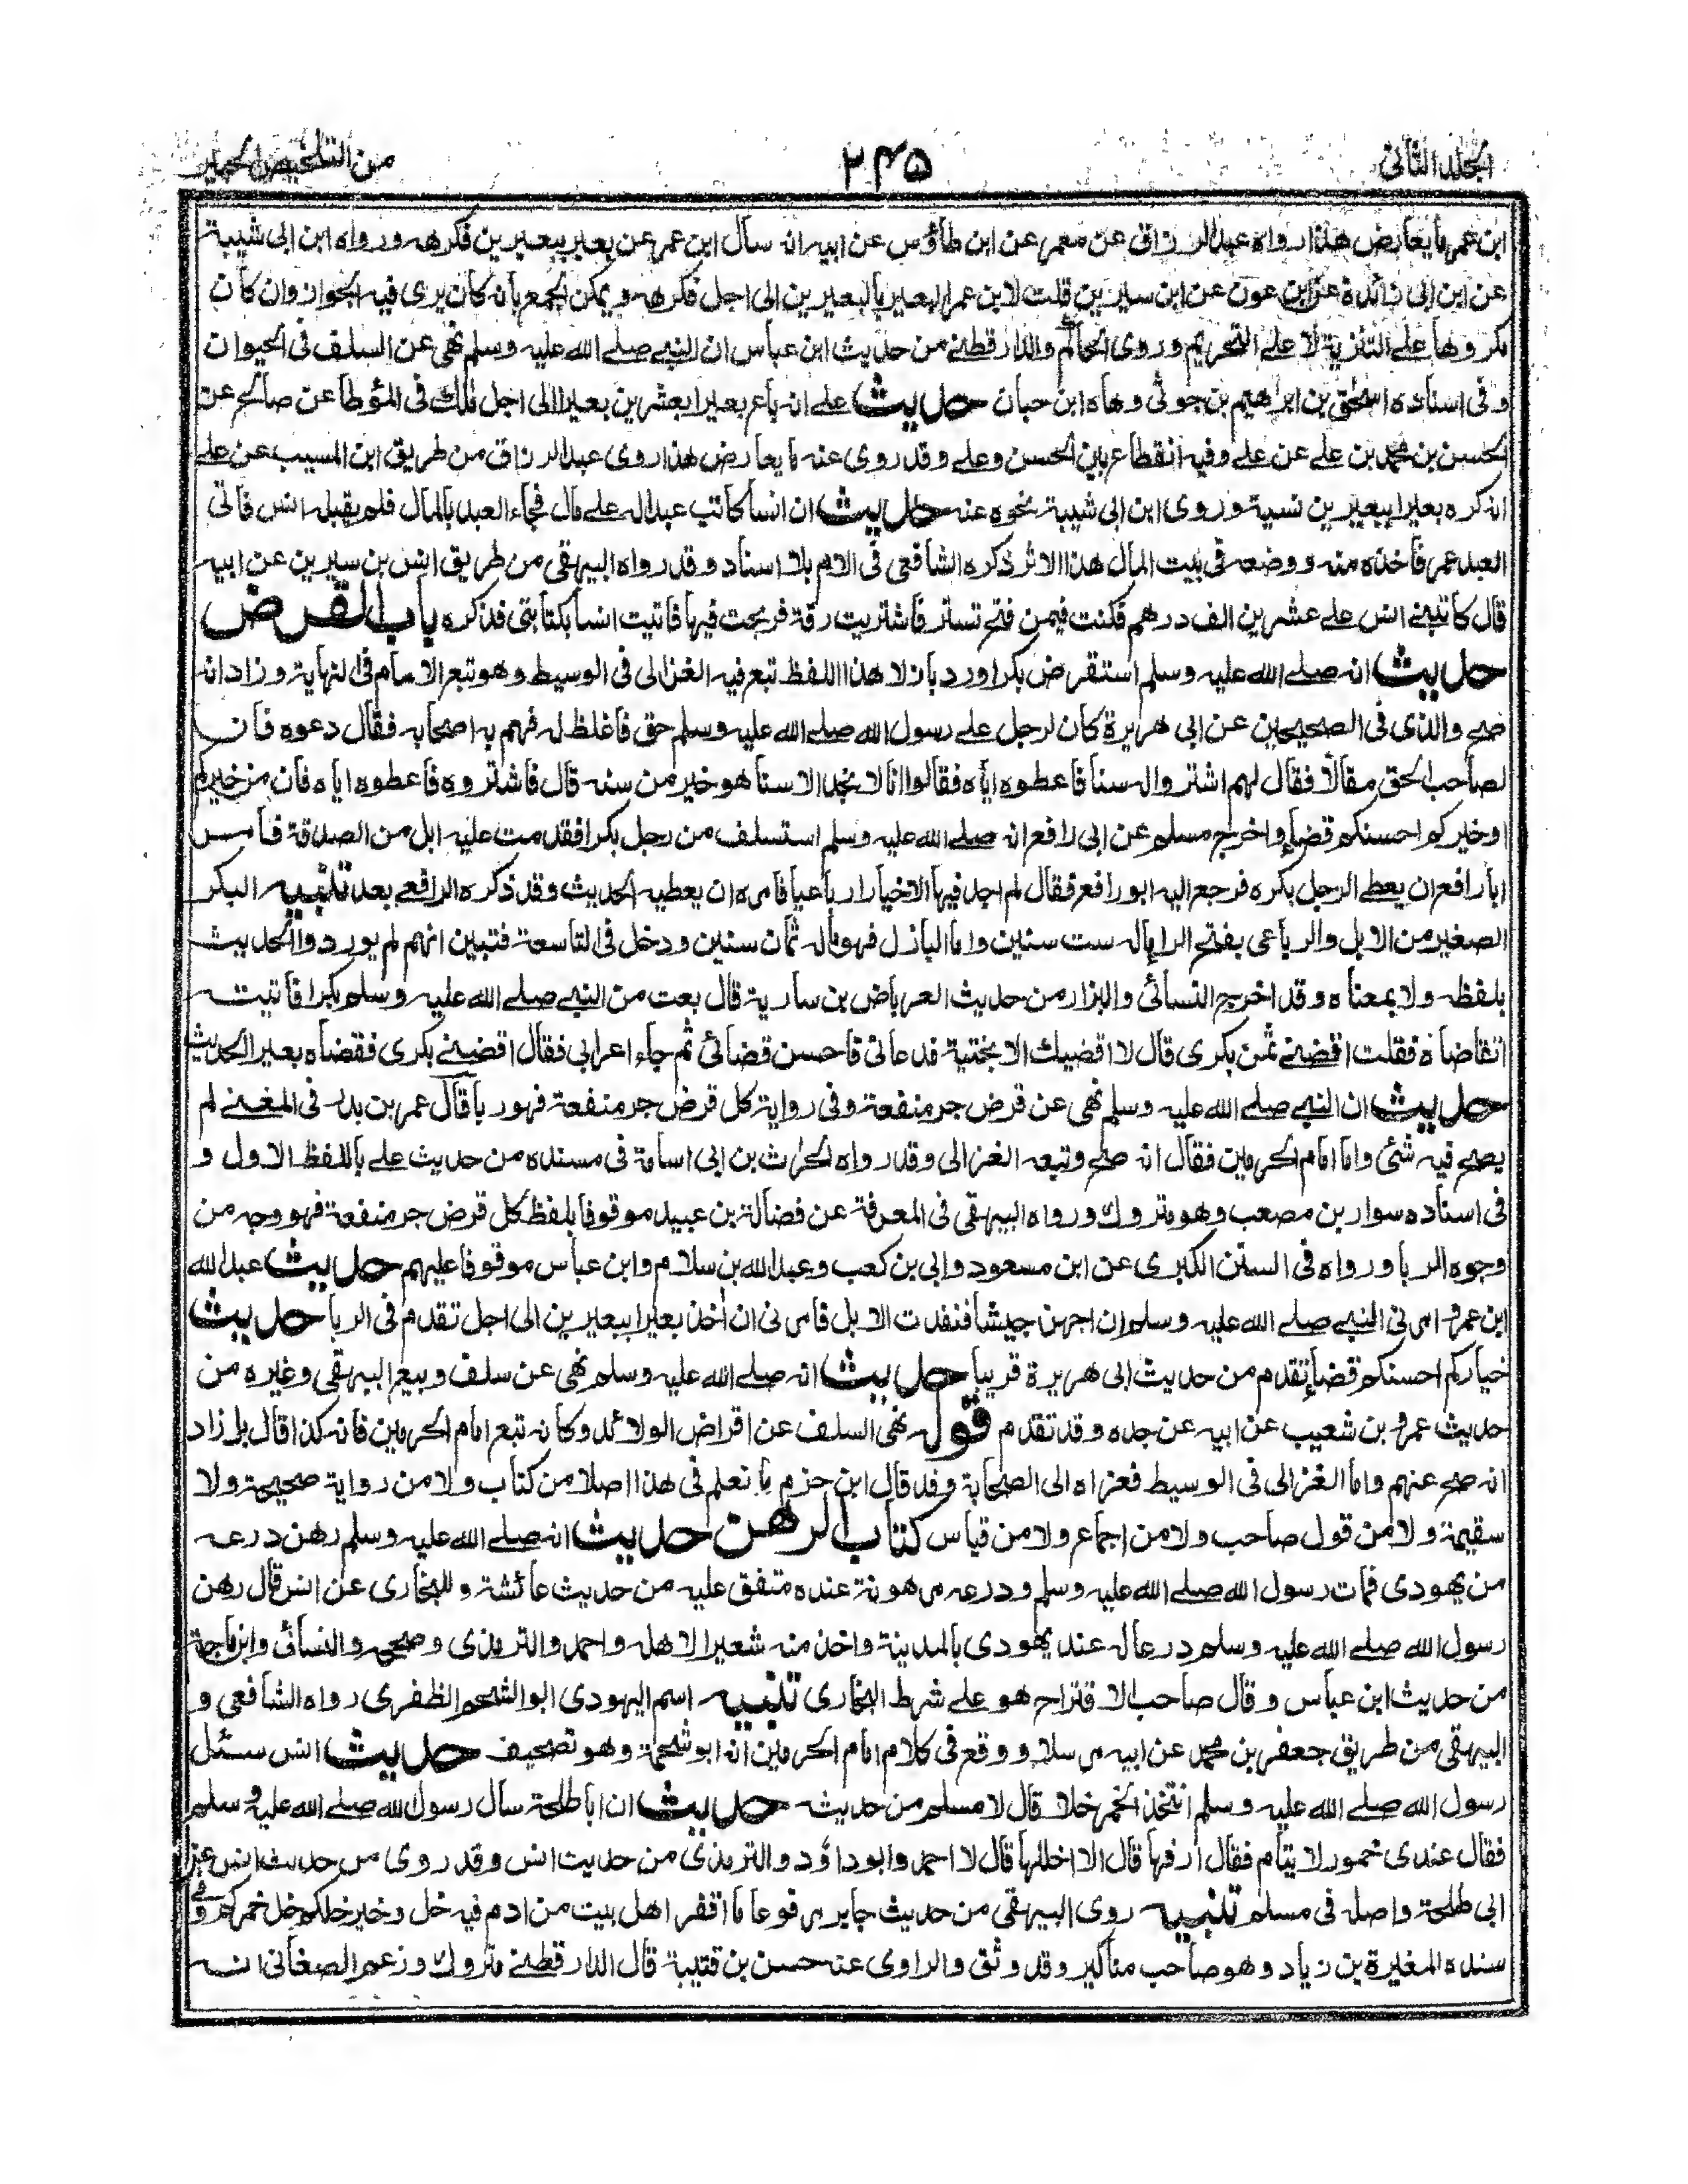 الجلد الثاني
۲۴۵
من التلخيص الحبير
ابن عمر ما يعارض هذا رواه عبد الرزاق عن معمر عن ابن طاؤس عن ابيه انه سأل ابن عمر عن بعير ببعيرين فكرهه ورواه ابن ابى شيبة
عن ابن ابى زائدة عن ابن عون عن ابن سيرين قلت لابن عمر البعير بالبعيرين الى اجل فكرهه ويمكن الجمع بأنه كان يرى فيه الجواز وان كان
مكروها على التنزيه لا على التحريم وروى الحاكم والدارقطنى من حديث ابن عباس ان النبي صلى الله عليه وسلم نهى عن السلف فى الحيوان
وفى اسناده اسحق بن ابراهيم بن جوثى وهاه ابن حبان حديث على انه باع بعيرا بعشرين بعيرا الى اجل مالك فى المؤطا عن صالح عن
الحسن بن محمد بن على عن على وفيه انقطاع بين الحسن وعلى وقد روى عنه ما يعارض هذا روى عبد الرزاق من طريق ابن المسيب عن على
انه كره بعيرا ببعيرين نسية وروى ابن ابى شيبة نحوه عنه حديث ان انسا كاتب عبدا له على مال فجاء العبد بالمال فلم يقبله انس فاتى
العبد عمر فاخذه منه ووضعه فى بيت المال هذا الاثر ذكره الشافعى فى الام بلا اسناد وقد رواه البيهقى من طريق انس بن سيرين عن ابيه
قال كاتبنى انس على عشرين الف درهم فكنت فيمن فتح تستر فاشتريت رقة فربحت فيها فاتيت انسا بكتابتى فذكره باب القرض
حديث انه صلى الله عليه وسلم استقرض بكرا ورد بازلا هذا اللفظ تبع فيه الغزالى فى الوسيط وهو تبع الامام فى النهاية وزاد انه
صح والذى فى الصحيحين عن ابى هريرة كان لرجل على رسول الله صلى الله عليه وسلم حق فاغلظ له فهم به اصحابه فقال دعوه فان
لصاحب الحق مقالا فقال لهم اشتروا له سنا فاعطوه اياه فقالوا انا لا نجد الا سنا هو خير من سنه قال فاشتروه فاعطوه اياه فان من خيركم
او خيركم احسنكم قضاء واخرج مسلم عن ابى رافع انه صلى الله عليه وسلم استسلف من رجل بكرا فقدمت عليه ابل من الصدقة فأمر
ابا رافع ان يعطى الرجل بكره فرجع اليه ابو رافع فقال لم اجد فيها الا خيارا رباعيا فامره ان يعطيه الحديث وقد ذكره الرافعى بعد تنبيه البكر
الصغير من الابل والرباعى بفتح الراء ماله ست سنين واما البازل فهو ماله ثمان سنين ودخل فى التاسعة فتبين انهم لم يوردوا الحديث
بلفظه ولا بمعناه وقد اخرج النسائى والبزار من حديث العرباض بن سارية قال بعت من النبي صلى الله عليه وسلم بكرا فاتيته
اتقاضاه فقلت اقضنى ثمن بكرى قال لا اقضيك الا بختية فدعانى فاحسن قضائى ثم جاء اعرابى فقال اقضنى بكرى فقضاه بعيرا الحديث
حديث ان النبي صلى الله عليه وسلم نهى عن قرض جر منفعة وفى رواية كل قرض جر منفعة فهو ربا قال عمر بن بدر فى المغنى لم
يصح فيه شئ واما امام الحرمين فقال انه صح وتبعه الغزالى وقد رواه الحرث بن ابى اسامة فى مسنده من حديث على باللفظ الاول و
فى اسناده سوار بن مصعب وهو متروك ورواه البيهقى فى المعرفة عن فضالة بن عبيد موقوفا بلفظ كل قرض جر منفعة فهو وجه من
وجوه الربا ورواه فى السنن الكبرى عن ابن مسعود وابى بن كعب وعبد الله بن سلام وابن عباس موقوفا عليهم حديث عبد الله
ابن عمرو امرنى النبي صلى الله عليه وسلم ان اجهز جيشا فنفدت الابل فامرنى ان أخذ بعيرا ببعيرين الى اجل تقدم فى الربا حديث
خياركم احسنكم قضاء تقدم من حديث ابى هريرة قريبا حديث انه صلى الله عليه وسلم نهى عن سلف وبيع البيهقى وغيره من
حديث عمرو بن شعيب عن ابيه عن جده وقد تقدم قوله نهى السلف عن اقراض الولائد وكانه تبع امام الحرمين فانه كذا قال بل زاد
انه صح عنهم واما الغزالى فى الوسيط فعزاه الى الصحابة وقد قال ابن حزم ما نعلم فى هذا اصلا من كتاب ولا من رواية صحيحة ولا
سقيمة ولا من قول صاحب ولا من اجماع ولا من قياس كتاب الرهن حديث انه صلى الله عليه وسلم رهن درعه
من يهودى فمات رسول الله صلى الله عليه وسلم ودرعه مرهونة عنده متفق عليه من حديث عائشة وللبخارى عن انس قال رهن
رسول الله صلى الله عليه وسلم درعا له عند يهودى بالمدينة واخذ منه شعيرا لاهله واحمد والترمذى وصححه والنسائى وابن ماجة
من حديث ابن عباس وقال صاحب الاقتراح هو على شرط البخارى تنبيه اسم اليهودى ابو الشحم الظفرى رواه الشافعى و
البيهقى من طريق جعفر بن محمد عن ابيه مرسلا ووقع فى كلام امام الحرمين انه ابو شحمة وهو تصحيف حديث انس سئل
رسول الله صلى الله عليه وسلم انتخذ الخمر خلا قال لا مسلم من حديثه حديث ان ابا طلحة سأل رسول الله صلى الله عليه وسلم
فقال عندى خمور لايتام فقال ارقها قال الا اخللها قال لا احمد وابو داؤد والترمذى من حديث انس وقد روى من حديث انس عن
ابى طلحة واصله فى مسلم تنبيه روى البيهقى من حديث جابر مرفوعا ما اقفر اهل بيت من ادم فيه خل وخير خلكم خل خمركم وفى
سنده المغيرة بن زياد وهو صاحب مناكير وقد وثق والراوى عنه حسن بن قتيبة قال الدارقطنى متروك وزعم الصغانى انه